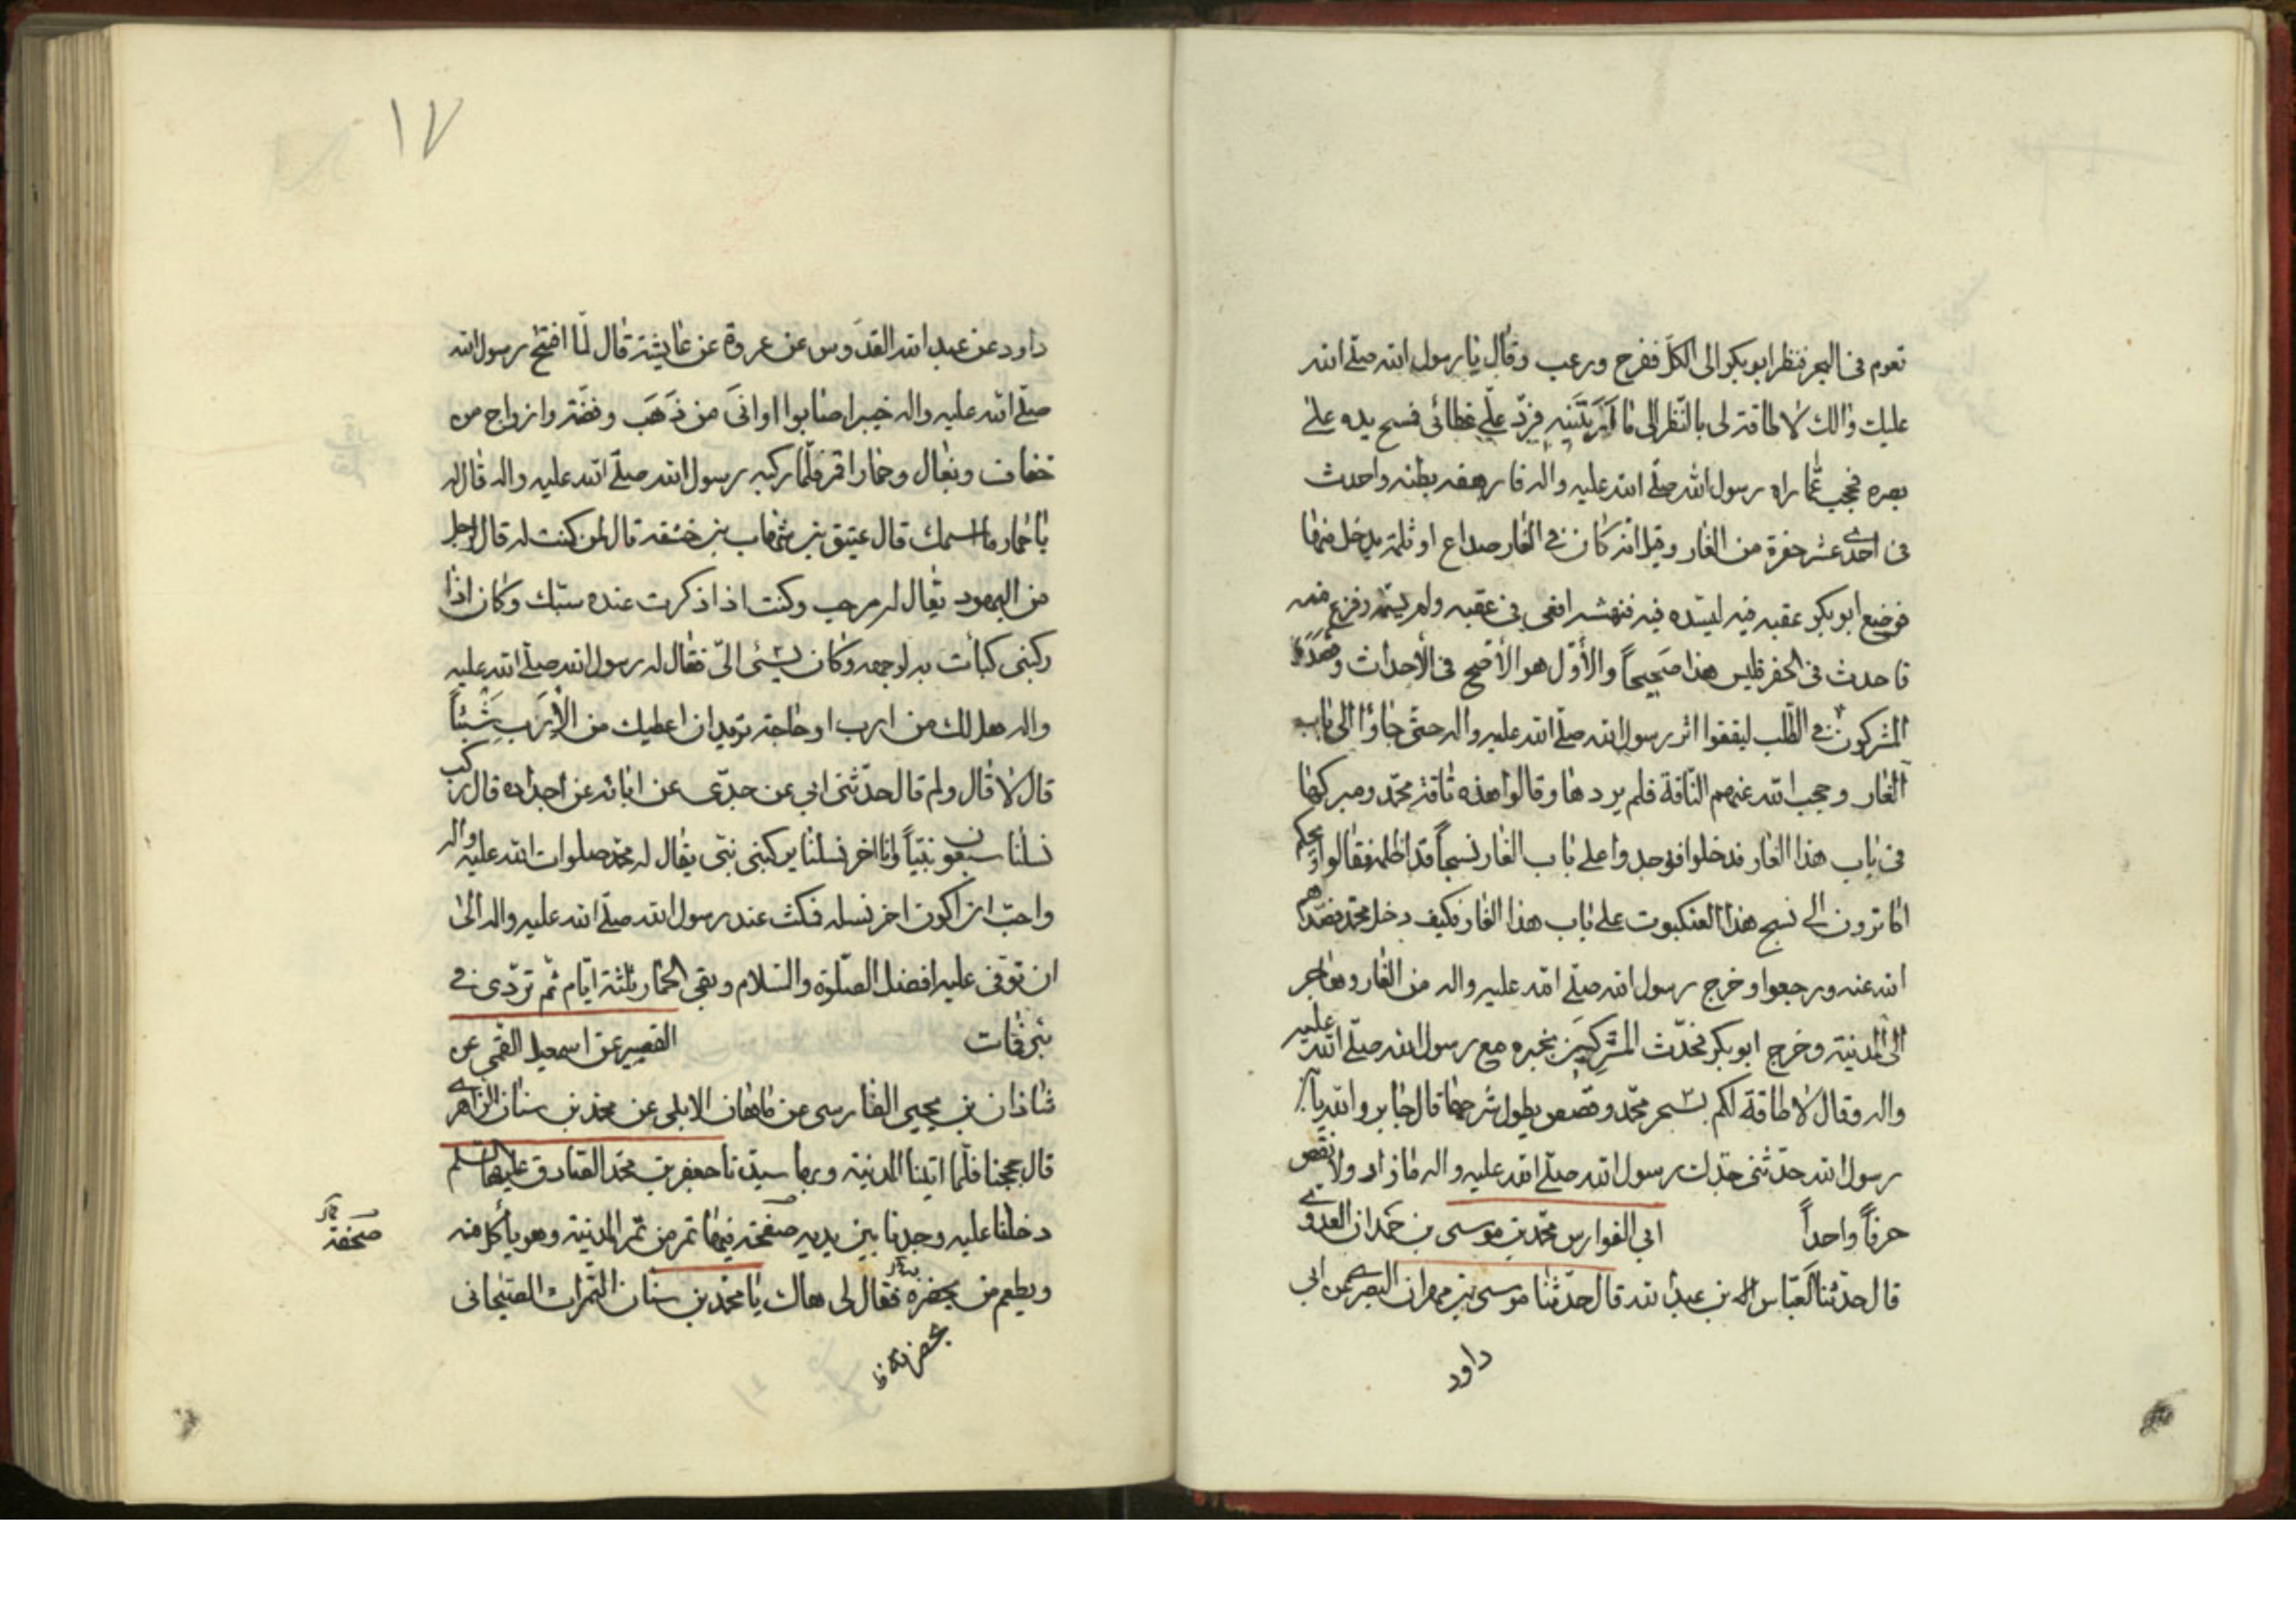 تعوم فى البحر فنظر ابو بكر الى الكلّ ففزع ورعب وقال يا رسول الله صلّى الله
عليك والك لا طاقة لى بالنّظر الى ما اَرَيْتَنيهِ فردّ علىّ غطائى فمسح يده على
بصره فحجب عمّا راه رسول الله صلّى الله عليه واله فارهقه بطنه واحدث
فى احدى عشر حفرة من الغار وقيل انّه كان فى الغار صداع او ثلمة يدخل منها
فوضع ابو بكر عقبه فيه ليسدّه فيه فنهشه افعى فى عقبه ولم يسمّه وفزع منه
فاحدث فى الحفر فليس هذا صَحيحاً والأوّل هو الأصح فى الأحداث وقصدَهُ
المشركون فى الطّلب ليقفوا اثر رسول الله صلّى الله عليه واله حتّى جاؤا الى باب
الغار وحجب الله عنهم النّاقة فلم يردها وقالوا هذه ناقة محمّد ومبركها
فى باب هذا الغار فدخلوا فوجدوا على باب الغار نسجاً قد اظلّه فقالوا ويحكم
اما ترون الى نسج هذا العنكبوت على باب هذا الغار فكيف دخل محمّد فصدّهم
الله عنه ورجعوا وخرج رسول الله صلّى الله عليه واله من الغار وهاجر
الى المدنية وخرج ابو بكر فحدّث المشركينَ بخبره مع رسول الله صلّى الله عليه
واله وقال لا طاقة لكم بسحر محمّد وقصص يطول شرحها قال جابر والله يا
رسول الله حدّثنى جدّك رسول الله صلّى الله عليه واله ما زاد ولا نقص
حرفاً واحداً ابى الفوارس محمّد بن موسى بن حمدان العدوى
قال حدّثنا العبّاس بن عبد الله قال حدّثنا موسى بن مهران البصرى عن ابى
داود
١٧
داود عن عبد الله القدّوس عن عروة عن عايشة قال لمّا افتح رسول الله
صلّى الله عليه واله خيبر اصابوا اوانىَ من ذَهَب وفضّة وازواج من
خفاف وبغال وحمارا قمر فلمّا ركبه رسول الله صلّى الله عليه واله قال له
يا حمار ما اسمك قال عتيق بن شهاب بن حنيفه قال لمن كنت له قال لرجل
من اليهود يقال له مرحب وكنت اذا ذكرت عنده سبّك وكان اذا
ركبنى كبأت به لوجهه وكان يسئى الىّ فقال له رسول الله صلّى الله عليه
واله هل لك من ارب او حاجة تريد ان اعطيك من الأرَبِ شَيْئاً
قال لا قال ولم قال حدّثنى ابى عن جدّى عن ابائه عن اجداده قال ركب
نسلنا سبعون نبيّاً وانا اخر نسلنا يركبنى نبّى يقال له محمّد صلوات الله عليه واله
واحبّ ان اكون اخر نسله فمكث عند رسول الله صلّى الله عليه واله الى
ان توفى عليه افضل الصّلوة والسّلام وبقى الحمار ثلثة ايّام ثمّ تردّى فى
بئر فمات القصير عن اسمعيل القمّى عن
شاذان بن يحيى الفارسى عن ماهان الابلى عن محمّد بن سنان الزاهرى
قال حججنا فلمّا اتينا المدنية وبها سيّدنا جعفر بن محمّد الصّادق عليهما السلم
دخلنا عليه وجدنا بين يديه صفحة فيها تمر من تمر المدنية وهو يأكل منه
صحفة
ويطعم من بحضره فقال لى هاك يا محمّد بن سنان التمرات الصيحانى
بحضرته ظ